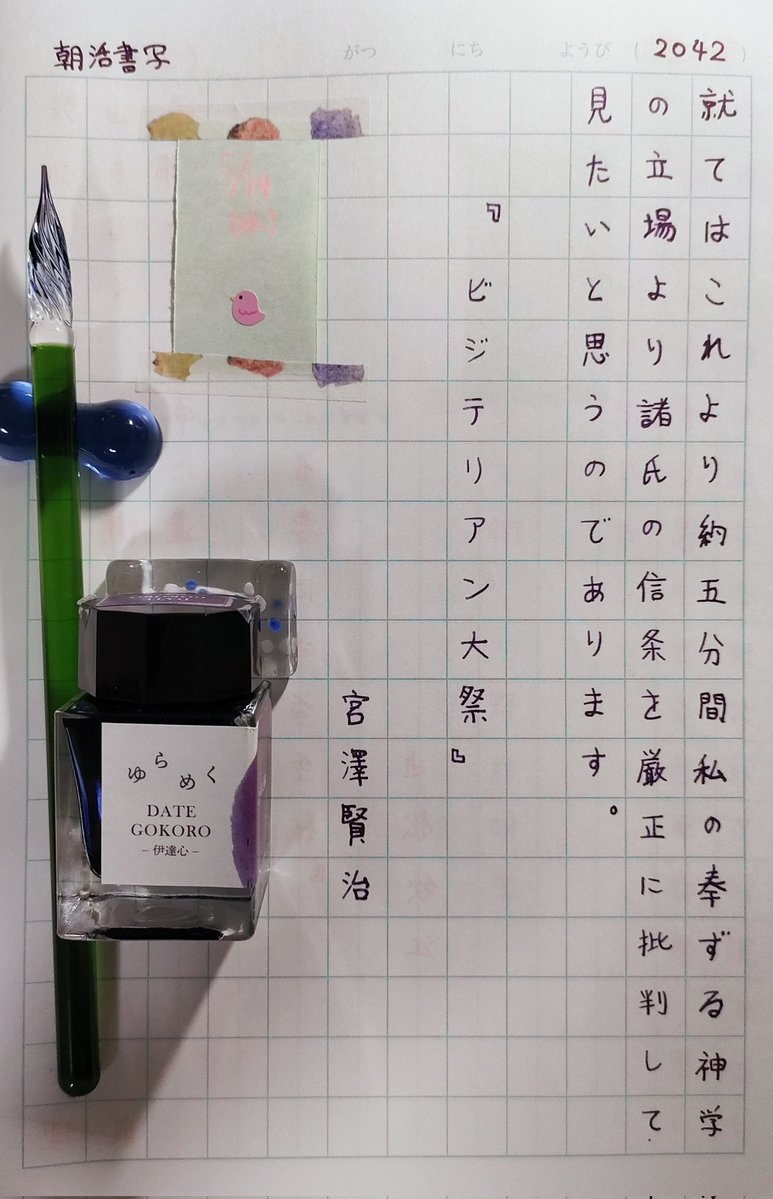 朝活書写
がつ にち ようび (2042)
就てはこれより約五分間私の奉ずる神学
の立場より諸氏の信条を厳正に批判して
見たいと思うのであります。
『ビジテリアン大祭』
宮澤賢治
ゆらめく
DATE
GOKORO
–伊達心–